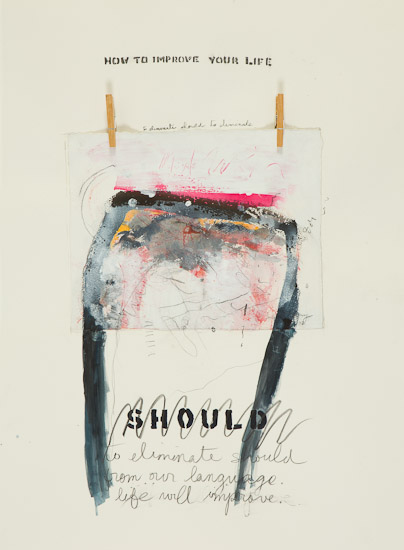 HOW TO IMPROVE YOUR LIFE
should to eliminate
SHOULD
to eliminate should
from our language.
life will improve.